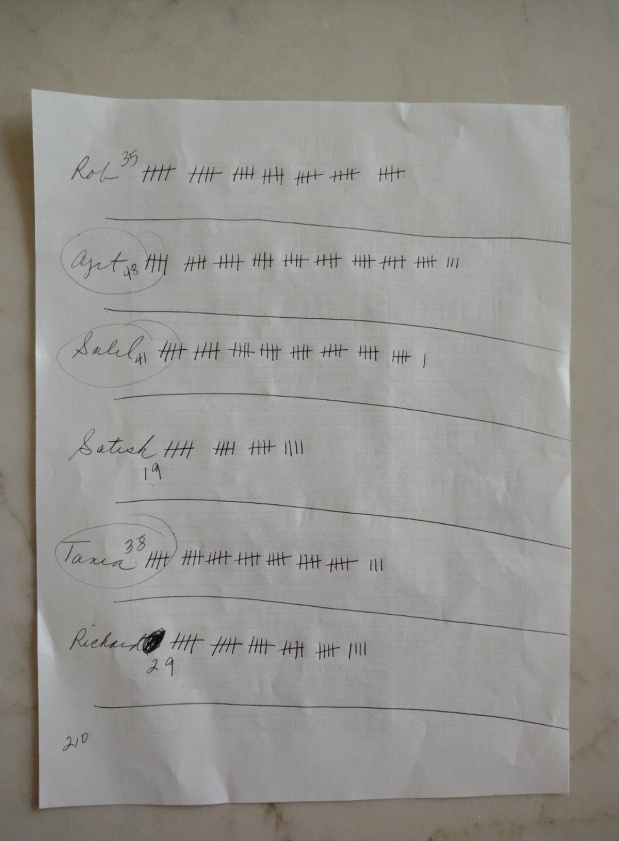 Rob 35
Ajit 48
Salil 41
Satish
19
Tania 38
Richard
29
210